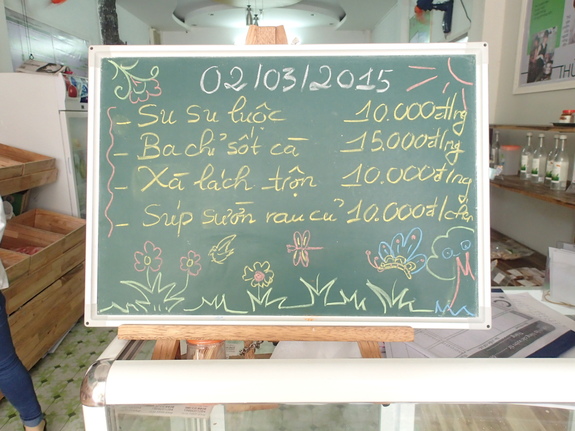 02/03/2015
- Su su luộc 10.000đ/ng
- Ba chỉ sốt cà 15.000đ/ng
- Xà lách trộn 10.000đ/ng
- Súp sườn rau củ 10.000đ/chén
THU